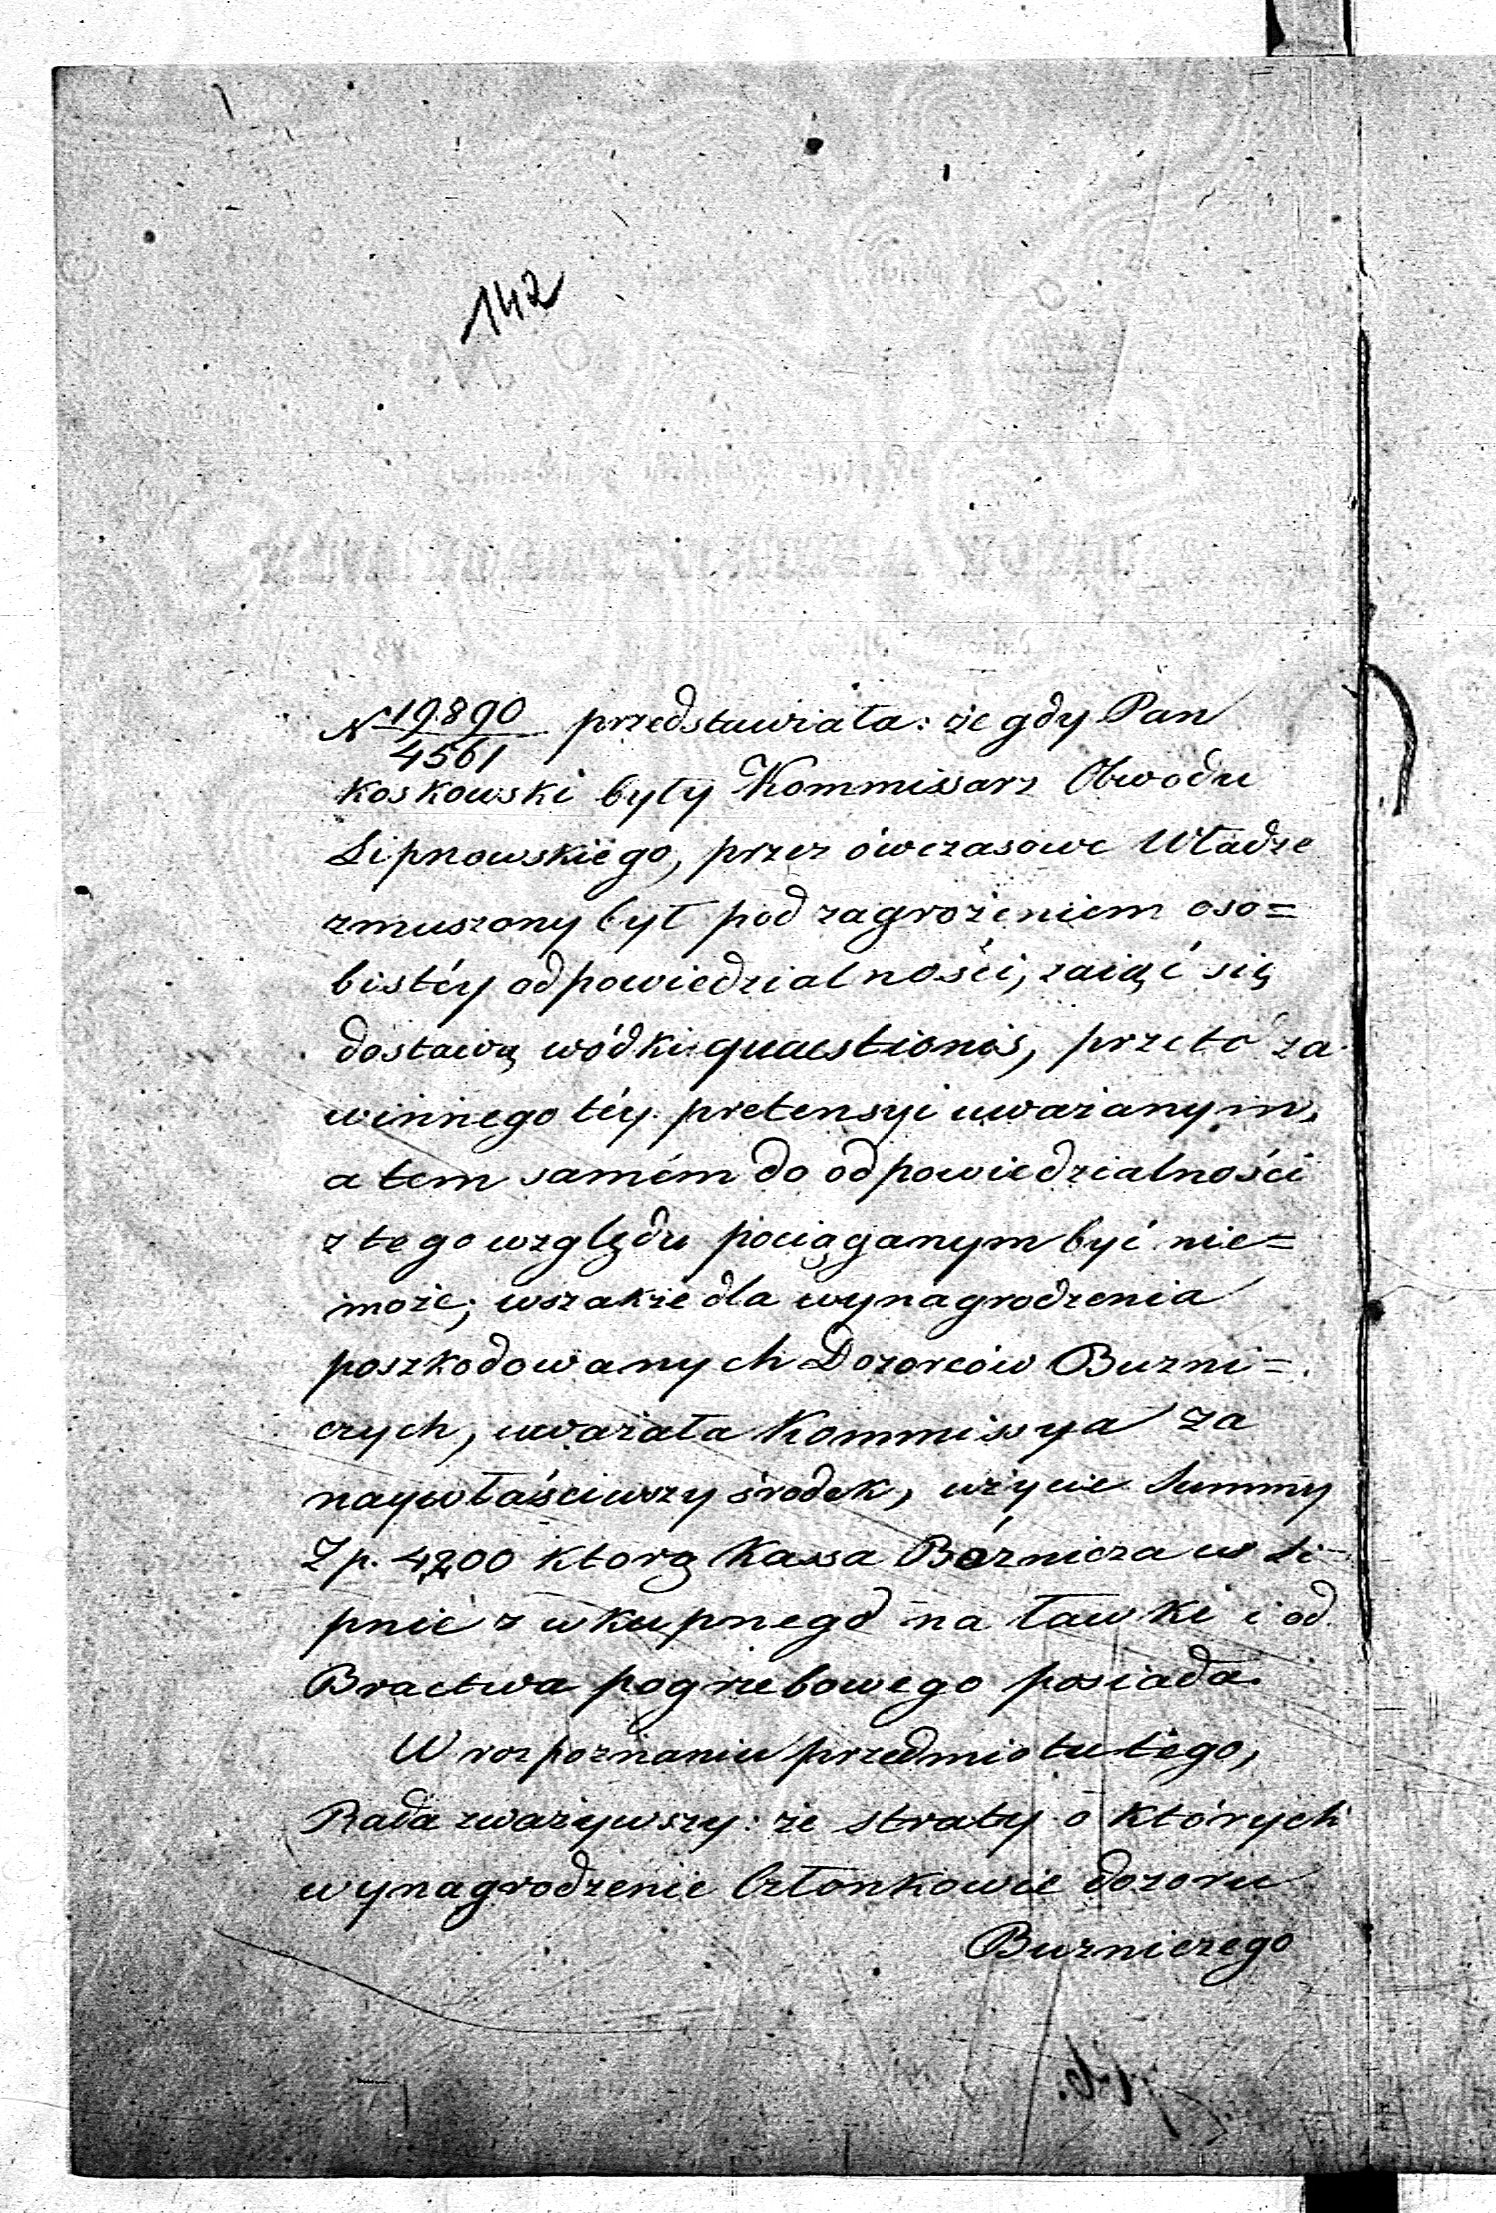 142
N 19890/4561 przedstawiała: że gdy Pan
Koskowski były Kommissarz Obwodu
Lipnowskiego, przez ówczasowe Władze
zmuszony był pod zagrożeniem oso=
bistéy odpowiedzialności, zaiąć się
dostawą wódki quaestionis, przeto za
winnego téy pretensyi uważanym,
a tem samém do odpowiedzialności
z tego względu pociąganym być nie=
może; wszakże dla wynagrodzenia
poszkodowanych Dozorców Bużni=
czych, uważała Kommissya za
naywłaściwszy środek, użycie Summy
Zp. 4200 którą Kassa Bóżnicza w Li-
pnie z wkupnego na ławki i od
Bractwa pogrzebowego posiada.
W rozpoznaniu przedmiotu tego,
Rada zważywszy: że straty o których
wynagrodzenie Członkowie dozoru
Bużniczego